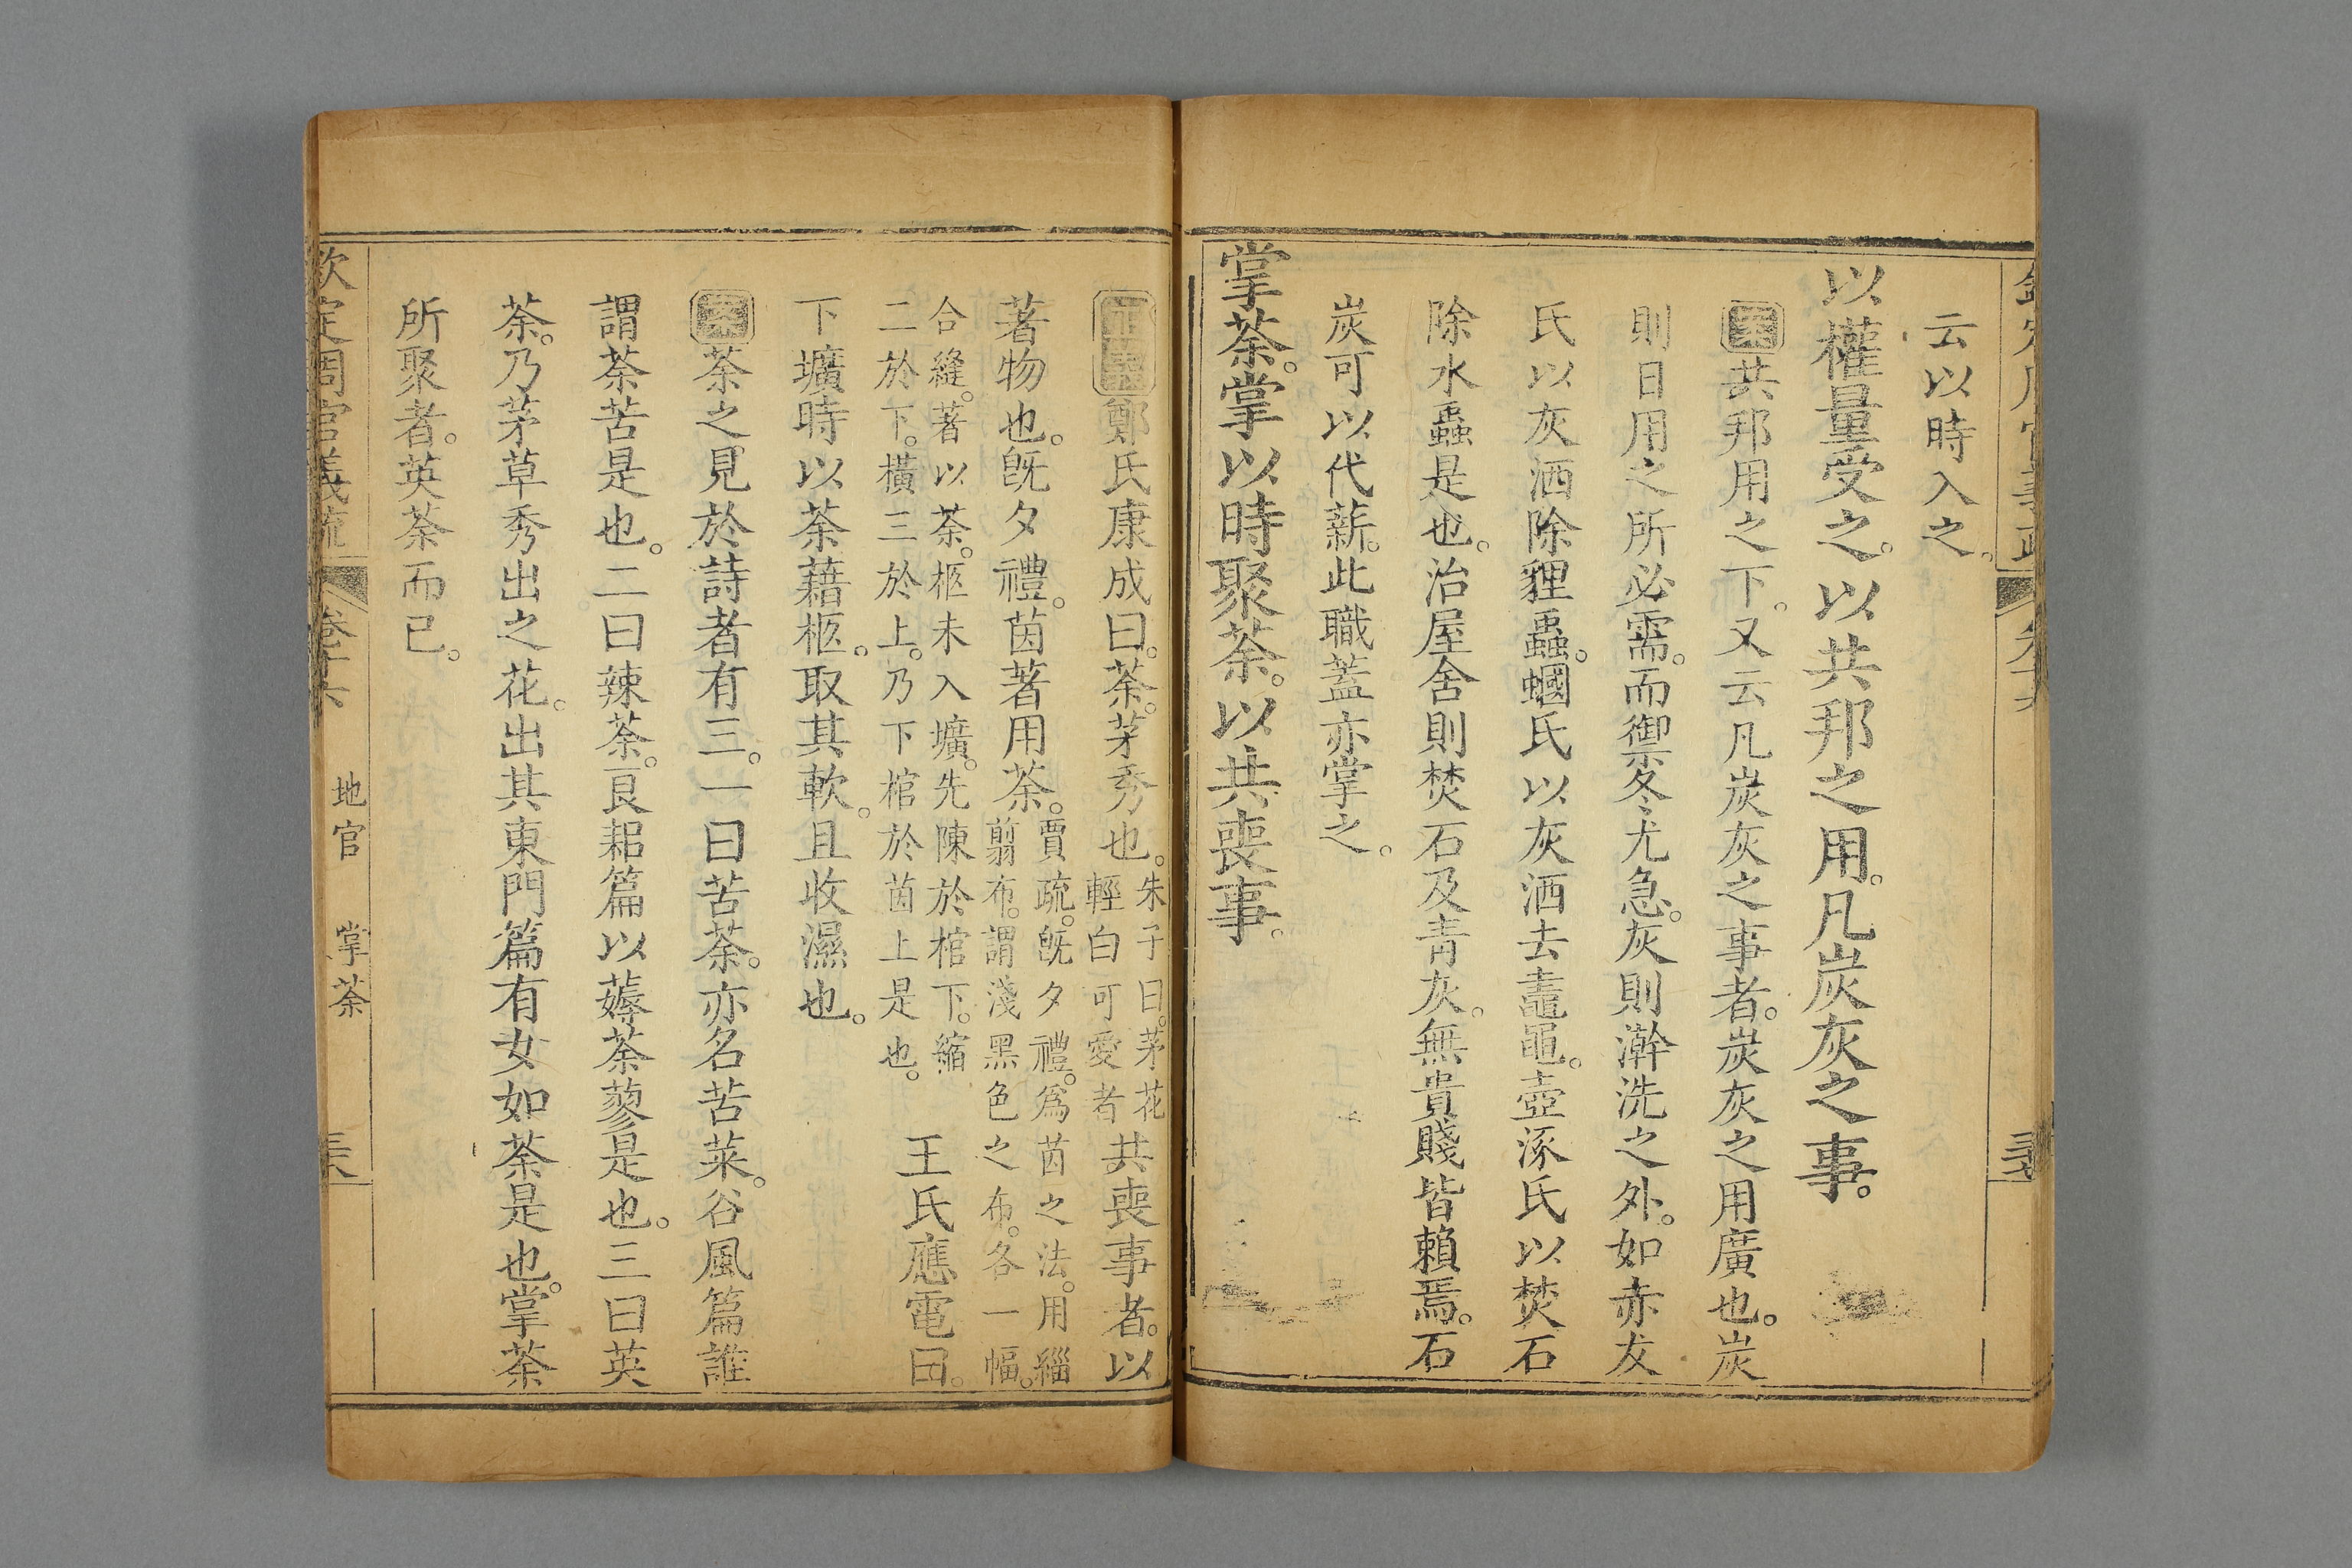 云以時入之。
以權量受之。以共邦之用。凡炭灰之事。
案共邦用之下。又云凡炭灰之事者。炭灰之用廣也。炭
則日用之所必需。而禦冬尤急。灰則澣洗之外。如赤犮
氏以灰洒除貍蟲。蟈氏以灰洒去䵷黽。壺涿氏以焚石
除水蟲是也。治屋舍則焚石及青灰。無貴賤皆賴焉。石
炭可以代薪。此職蓋亦掌之。
掌荼。掌以時聚荼。以共喪事。
正義鄭氏康成曰。荼。茅秀也。朱子曰。茅花輕白可愛者共喪事者。以
著物也。旣夕禮。茵著用荼。賈疏。旣夕禮。爲茵之法。用緇翦布。謂淺黑色之布。各一幅。
合縫。著以荼。柩未入壙。先陳於棺下。縮二於下。橫三於上。乃下棺於茵上是也。王氏應電曰。
下壙時以荼藉柩。取其軟。且收濕也。
案荼之見於詩者有三。一曰苦荼。亦名苦菜。谷風篇誰
謂荼苦是也。二曰辣荼。良耜篇以薅荼蓼是也。三曰英
荼。乃茅草秀出之花。出其東門篇有女如荼是也。掌荼
所聚者。英荼而已。
欽定周官義疏 卷十六 地官 掌荼 三八